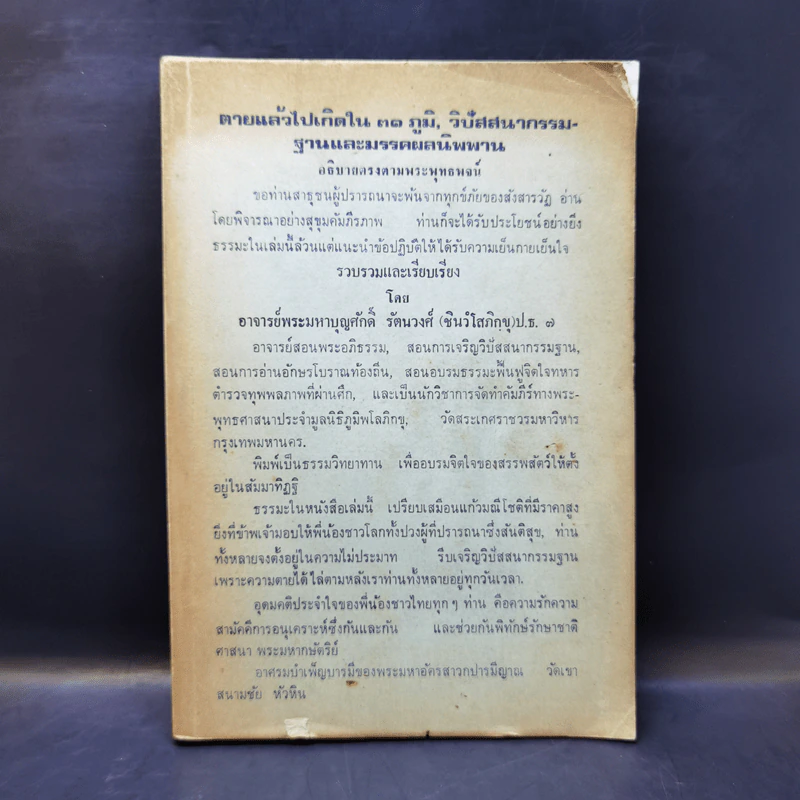 ตายแล้วไปเกิดใน ๓๑ ภูมิ, วิปัสสนากรรม-
ฐานและมรรคผลนิพพาน
อธิบายตรงตามพระพุทธพจน์
ขอท่านสาธุชนผู้ปรารถนาจะพ้นจากทุกข์ภัยของสังสารวัฏ อ่าน
โดยพิจารณาอย่างสุขุมคัมภีรภาพ ท่านก็จะได้รับประโยชน์อย่างยิ่ง
ธรรมะในเล่มนี้ล้วนแต่แนะนำข้อปฏิบัติให้ได้รับความเย็นกายเย็นใจ
รวบรวมและเรียบเรียง
โดย
อาจารย์พระมหาบุญศักดิ์ รัตนวงศ์ (ชินวํโสภิกฺขุ)ป.ธ. ๗
อาจารย์สอนพระอภิธรรม, สอนการเจริญวิปัสสนากรรมฐาน,
สอนการอ่านอักษรโบราณท้องถิ่น, สอนอบรมธรรมะฟื้นฟูจิตใจทหาร
ตำรวจทุพพลภาพที่ผ่านศึก, และเป็นนักวิชาการจัดทำคัมภีร์ทางพระ-
พุทธศาสนาประจำมูลนิธิภูมิพโลภิกขุ, วัดสระเกศราชวรมหาวิหาร
กรุงเทพมหานคร.
พิมพ์เป็นธรรมวิทยาทาน เพื่ออบรมจิตใจของสรรพสัตว์ให้ตั้ง
อยู่ในสัมมาทิฏฐิ
ธรรมะในหนังสือเล่มนี้ เปรียบเสมือนแก้วมณีโชติที่มีราคาสูง
ยิ่งที่ข้าพเจ้ามอบให้พี่น้องชาวโลกทั้งปวงผู้ที่ปรารถนาซึ่งสันติสุข, ท่าน
ทั้งหลายจงตั้งอยู่ในความไม่ประมาท รีบเจริญวิปัสสนากรรมฐาน
เพราะความตายได้ไล่ตามหลังเราท่านทั้งหลายอยู่ทุกวันเวลา.
อุดมคติประจำใจของพี่น้องชาวไทยทุกๆ ท่าน คือความรักความ
สามัคคีการอนุเคราะห์ซึ่งกันและกัน และช่วยกันพิทักษ์รักษาชาติ
ศาสนา พระมหากษัตริย์
อาศรมบำเพ็ญบารมีของพระมหาอัครสาวกปารมีญาณ วัดเขา
สนามชัย หัวหิน